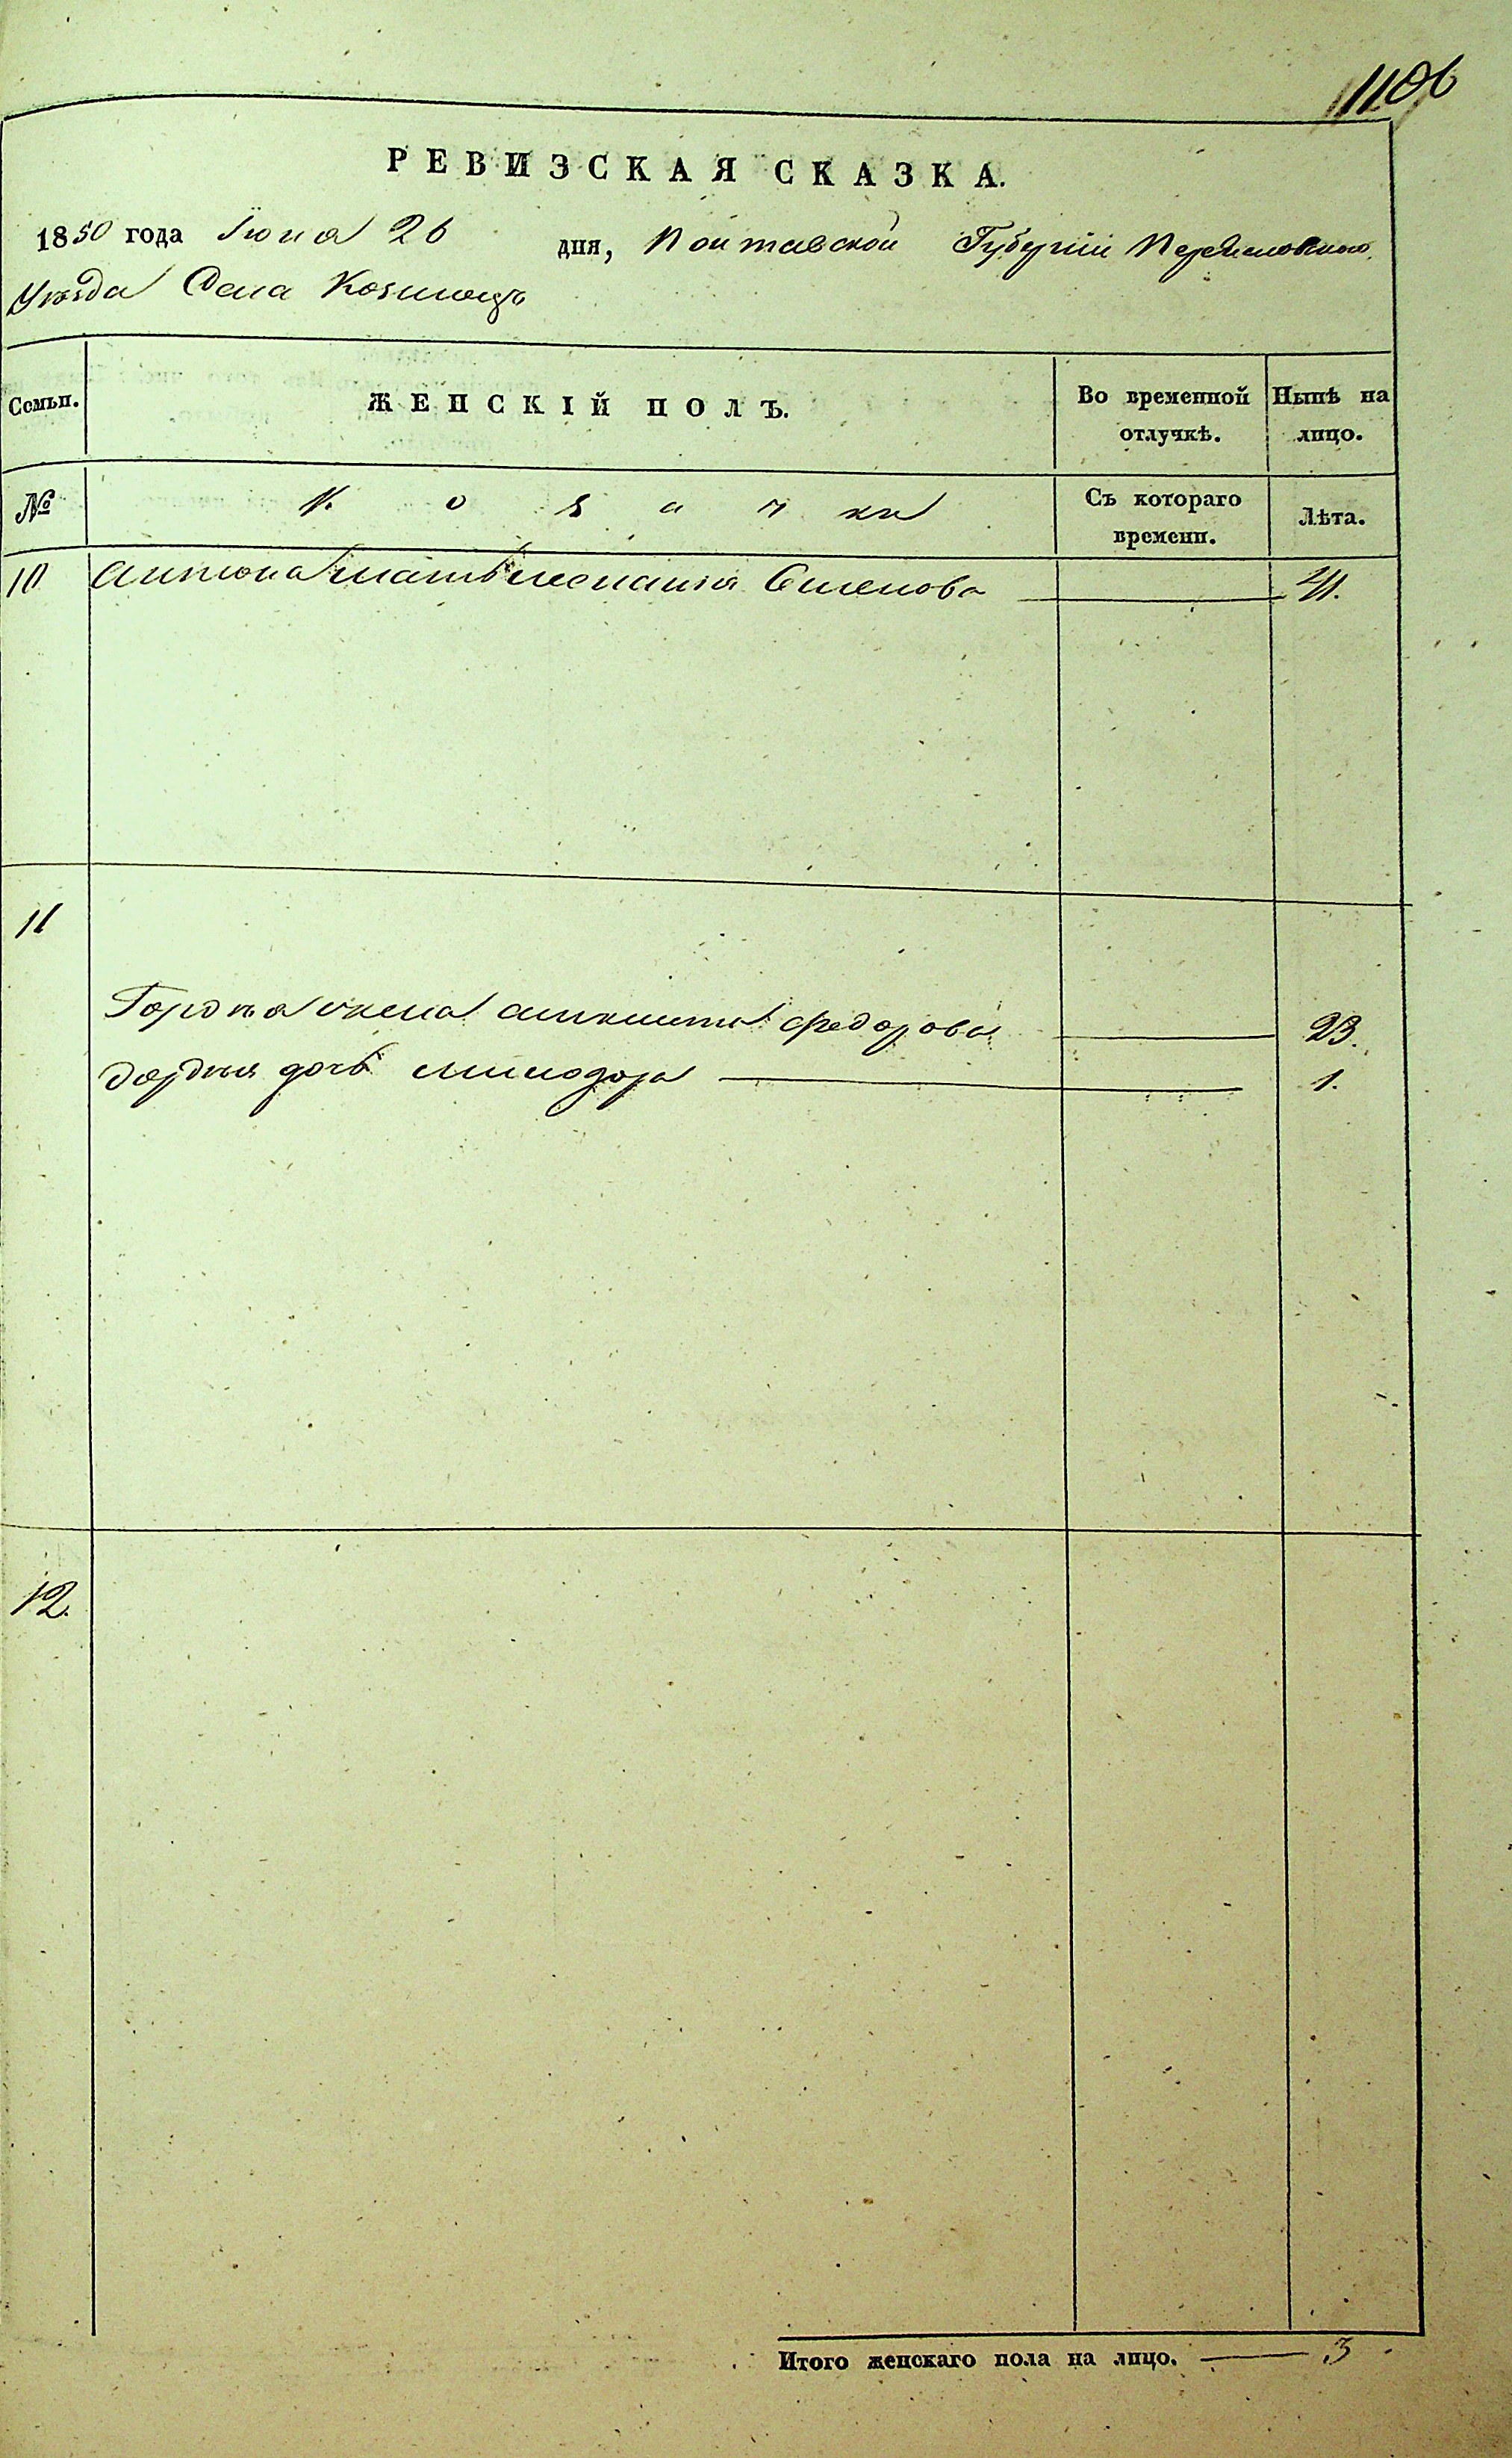 1106
РЕВИЗСКАЯ СКАЗКА.
1850 года Июня 26 дня, Полтавской Губерніи Переясловского
Уѣзда Села Козинецъ
Семьи. ЖЕНСКІЙ ПОЛЪ. Во временной отлучкѣ. Нынѣ на лицо.
№ Козачки Съ котораго времени. Лѣта.
10 Антона мать Меланія Семенова
11
Гордѣя жена Федорова 23.
Гордѣя дочь Минодора 1.
12.
Итого женскаго пола на лицо. 3